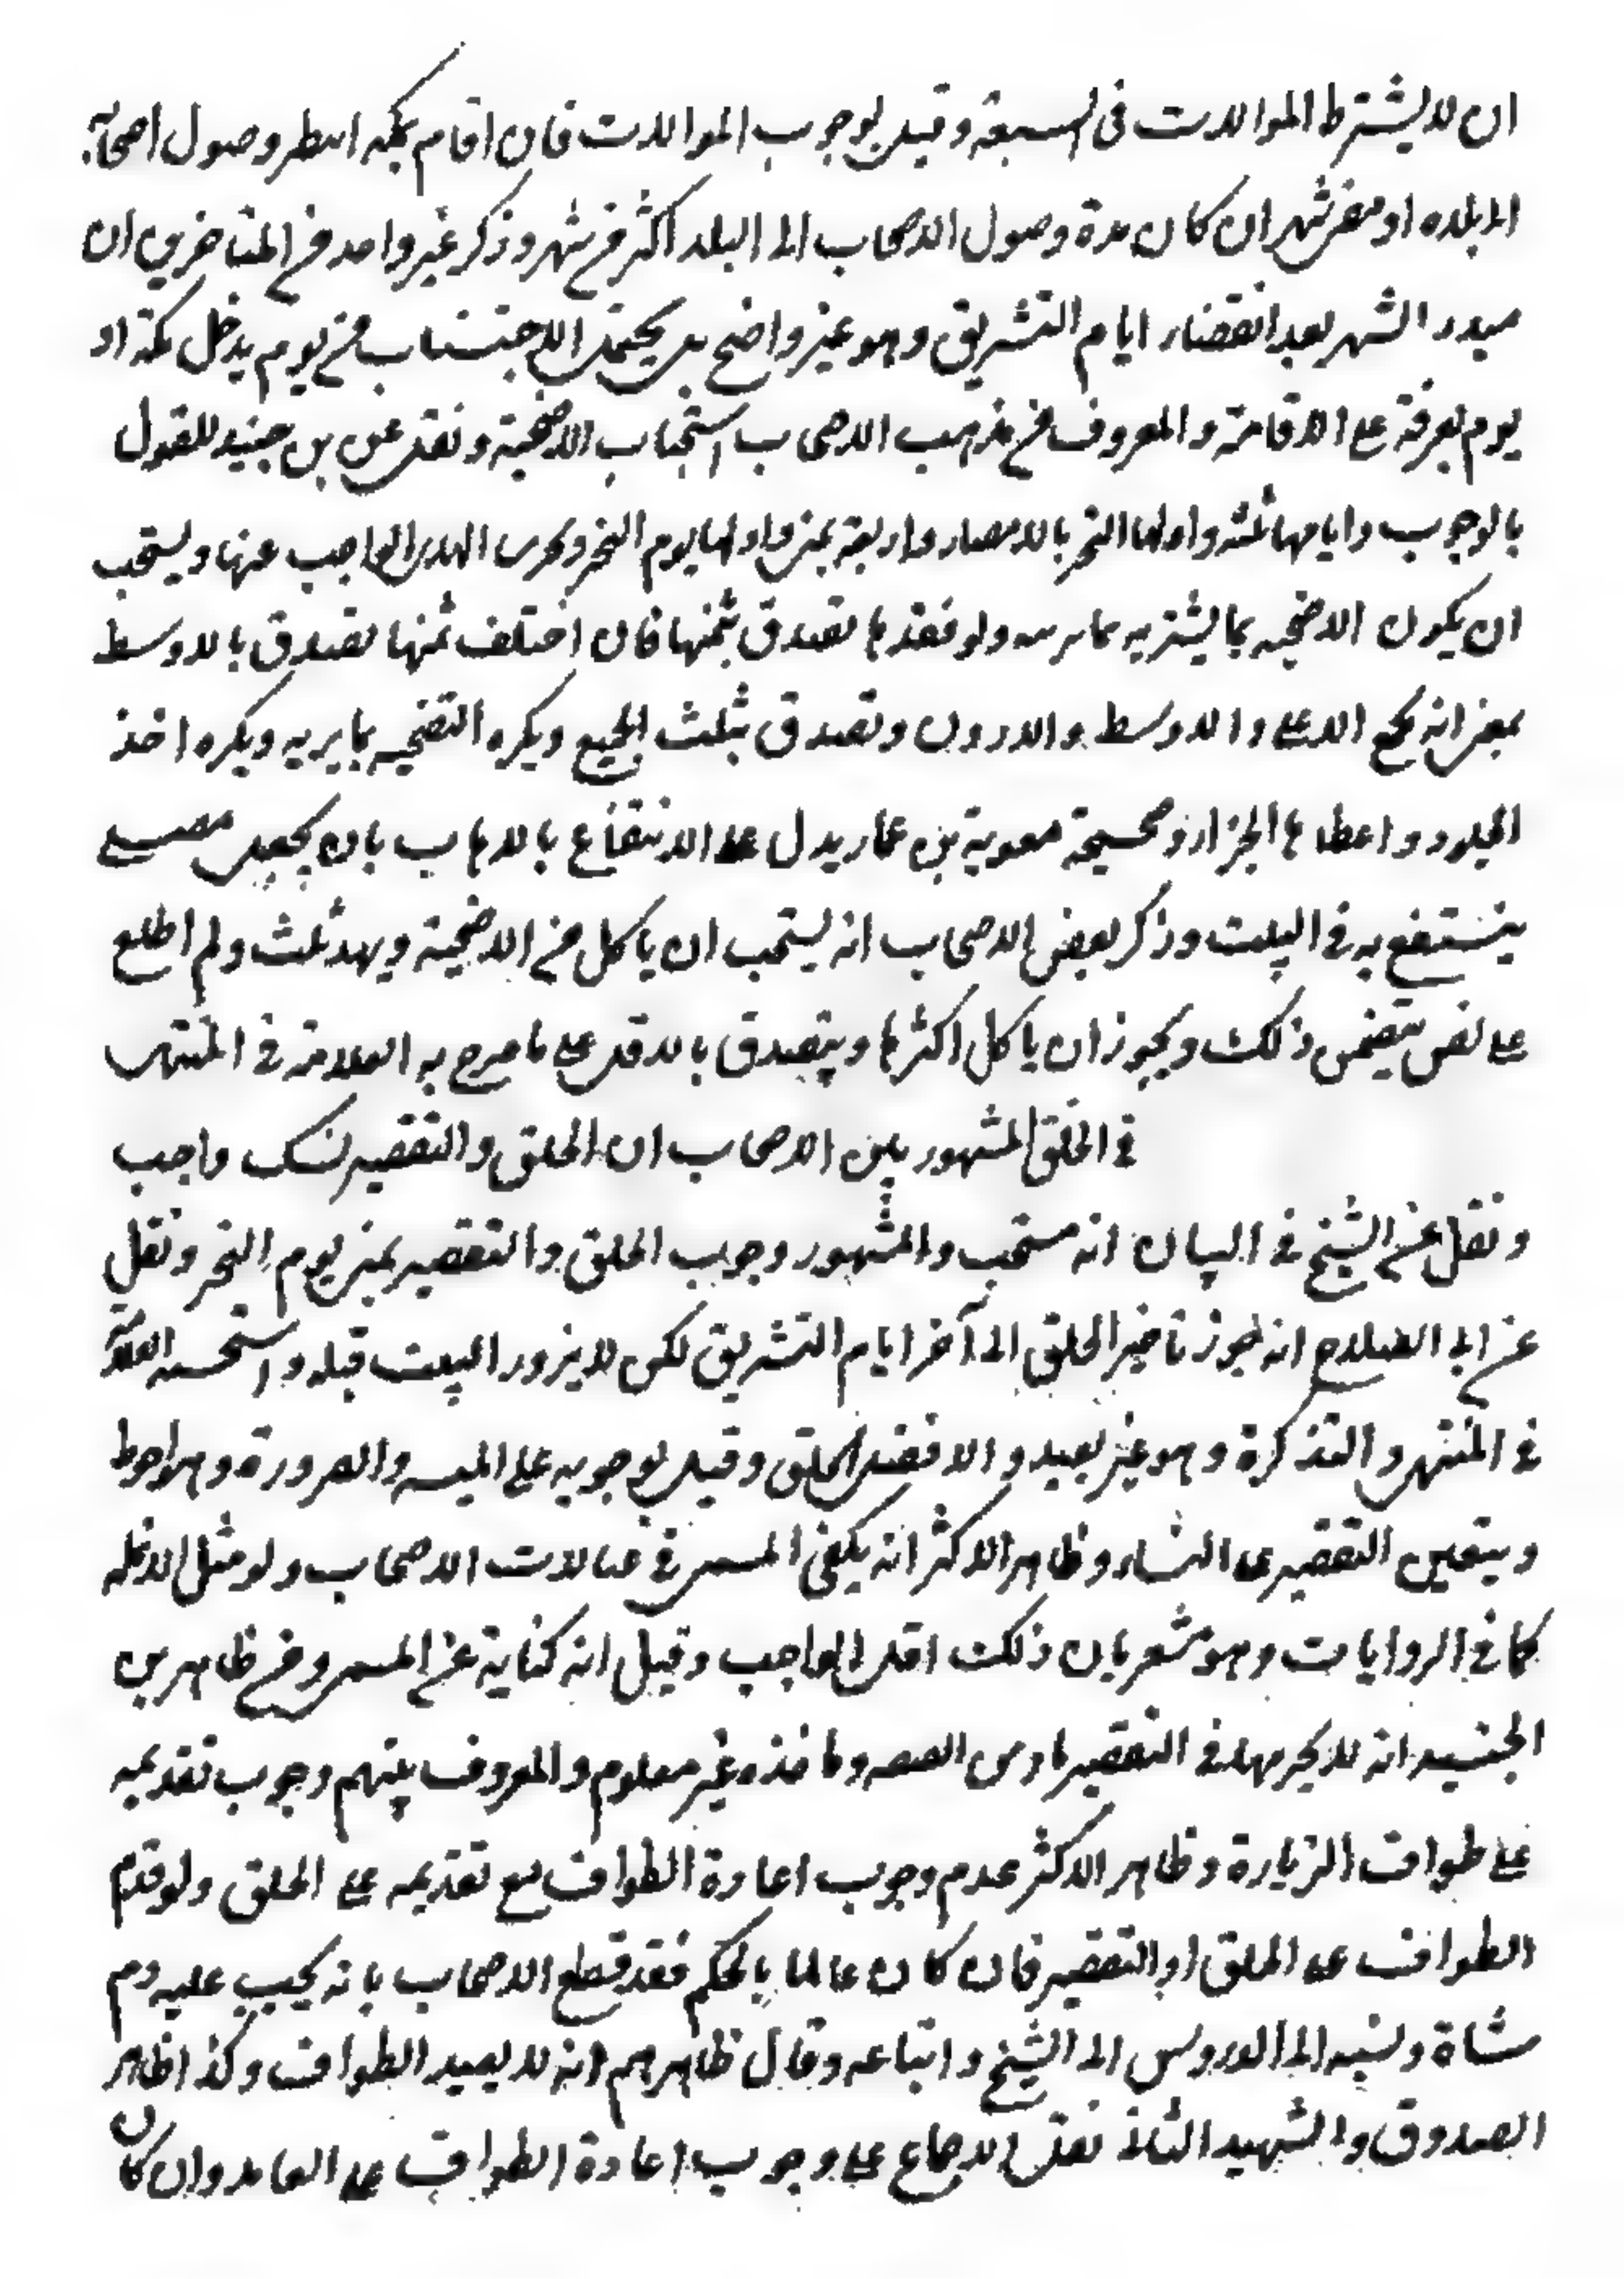 ان لا يشترط الموالات فى السبعة وقيل بوجوب الموالات فان اقام بمكه انتظر وصول اصحابه
الى بلده او مضى شهر ان كان مدة وصول الاصحاب الى البلد اكثر من شهر وذكر غير واحد من المتاخرين ان
مبدء الشهر بعد انقضاء ايام التشريق وهو غير واضح بل يحتمل الاحتساب من يوم يدخل مكة او
يوم يعرفة على الاقامة والمعروف من مذهب الاصحاب استحباب الاضحية ونقل عن بن جنيد للقول
بالوجوب وايامها ثلثه واولها النحر بالامصار واربعة بمنى واولها يوم النحر ويجزى الهدى الواجب عنها ويستحب
ان يكون الاضحيه بما يشتريه ولو فقدها تصدق بثمنها فان اختلف ثمنها تصدق بالاوسط
بمعنى انه يجمع الاعلى والاوسط والادون وتصدق بثلث الجميع ويكره التضحيه بما يربيه ويكره اخذ
الجلود واعطاها الجزار وصحيحة معوية بن عمار يدل على الانتفاع بالاهاب بان يجعل مصلى
ينتفع به فى البيت وذكر بعض الاصحاب انه يستحب ان ياكل من الاضحية ويهد ثلث ولم اطلع
على نص يتضمن ذلك ويجوز ان ياكل اكثرها ويتصدق بالاقل على ما صرح به العلامة فى المنتهى
فى الحلق المشهور بين الاصحاب ان الحلق والتقصير نسك واجب
ونقل عن الشيخ فى البيان انه مستحب والمشهور وجوب الحلق والتقصير بمنى يوم النحر ونقل
عن ابى الصلاح انه جوز تاخير الحلق الى آخر ايام التشريق لكن لا يزور البيت قبله واستحسنه العلامة
فى المنتهى والتذكرة وهو غير بعيد والافضل الحلق وقيل بوجوبه على الملبد والصرورة وهو احوط
ويتعين التقصير على النساء وظاهر الاكثر انه يكفى المسمى فى عبالات الاصحاب ولو مثل الانمله
كما فى الروايات وهو مشعر بان ذلك اقل الواجب وقيل انه كناية عن المسمى وعن ظاهر بن
الجنيد انه لا يجزيها فى التقصير ما دون القبضه وماخذه غير معلوم والمعروف بينهم وجوب تقديمه
على طواف الزيارة وظاهر الاكثر عدم وجوب اعادة الطواف مع تقديمه على الحلق ولو قدم
الطواف على الحلق او التقصير فان كان عالما بالحكم فقد قطع الاصحاب بانه يجب عليه دم
شاة ونسبه الى الدروس الى الشيخ واتباعه وقال ظاهرهم انه لا يعيد الطواف وكذا ظاهر
الصدوق والشهيد الثانى نقل الاجماع على وجوب اعادة الطواف على العامد وان كان